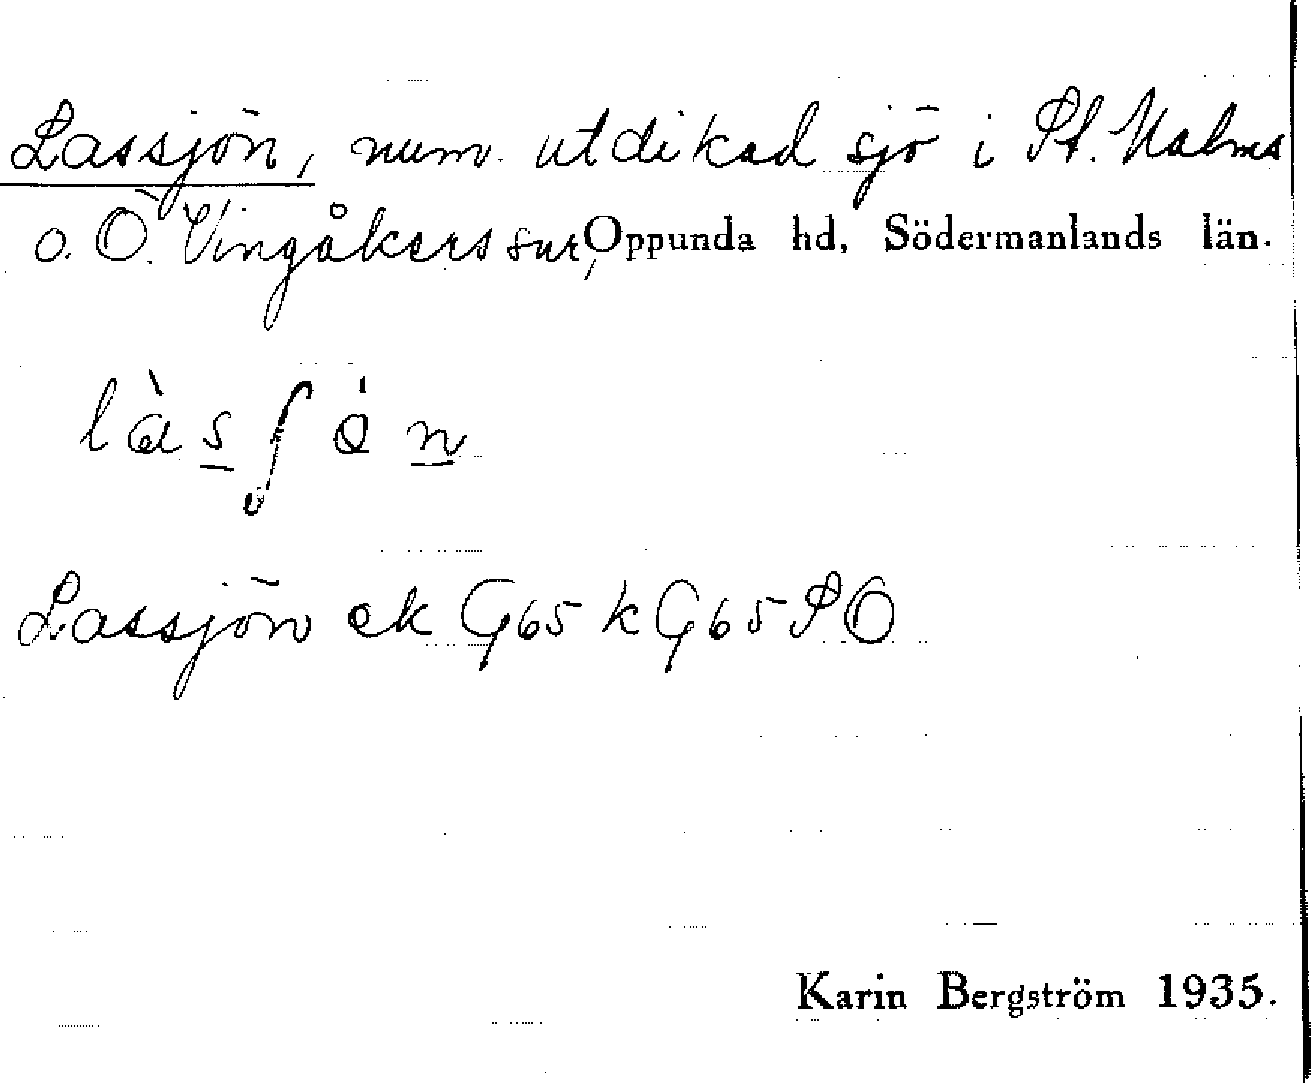 Lassjön, num. utdikad sjö i St. Malms
o. Ö. Vingåkers snr, Oppunda hd, Södermanlands län.
Lassjön ek G65 k G65 SO
Karin Bergström 1935.